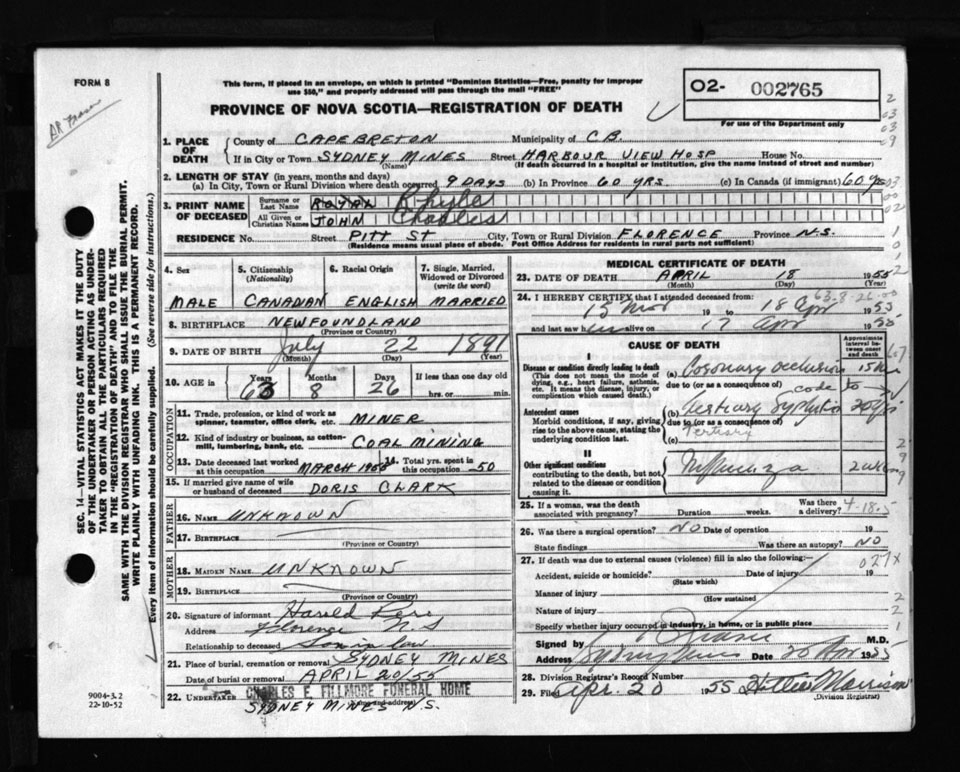 FORM 8
This form, if placed in an envelope, on which is printed "Dominion Statistics—Free, penalty for improper
use $50," and properly addressed will pass through the mail "FREE"
O2- 002765
For use of the Department only
PROVINCE OF NOVA SCOTIA—REGISTRATION OF DEATH
SEC. 14—VITAL STATISTICS ACT MAKES IT THE DUTY
OF THE UNDERTAKER OR PERSON ACTING AS UNDER-
TAKER TO OBTAIN ALL THE PARTICULARS REQUIRED
IN THE "REGISTRATION OF DEATH" AND TO FILE THE
SAME WITH THE DIVISION REGISTRAR WHO SHALL ISSUE THE BURIAL PERMIT.
WRITE PLAINLY WITH UNFADING INK. THIS IS A PERMANENT RECORD.
Every item of Information should be carefully supplied. (See reverse side for instructions.)
1. PLACE OF DEATH
County of CAPE BRETON Municipality of C.B.
If in City or Town SYDNEY MINES Street HARBOUR VIEW HOSP House No.
(Name) (If death occurred in a hospital or institution, give the name instead of street and number)
2. LENGTH OF STAY (in years, months and days)
(a) In City, Town or Rural Division where death occurred 9 DAYS (b) In Province 60 YRS. (c) In Canada (if immigrant) 60 yrs
3. PRINT NAME OF DECEASED
Surname or Last Name ROYAL
All Given or Christian Names JOHN Charles
RESIDENCE No. Street PITT ST City, Town or Rural Division FLORENCE Province N.S.
(Residence means usual place of abode. Post Office Address for residents in rural parts not sufficient)
4. Sex
MALE
5. Citizenship (Nationality)
CANADIAN
6. Racial Origin
ENGLISH
7. Single, Married, Widowed or Divorced (write the word)
MARRIED
8. BIRTHPLACE NEWFOUNDLAND
(Province or Country)
9. DATE OF BIRTH July 22 1891
(Month) (Day) (Year)
10. AGE in Years Months Days If less than one day old
63 8 26 hrs. or min.
OCCUPATION
11. Trade, profession, or kind of work as spinner, teamster, office clerk, etc. MINER
12. Kind of industry or business, as cotton-mill, lumbering, bank, etc. COAL MINING
13. Date deceased last worked at this occupation MARCH
14. Total yrs. spent in this occupation 50
15. If married give name of wife or husband of deceased DORIS CLARK
FATHER
16. Name UNKNOWN
17. Birthplace
(Province or Country)
MOTHER
18. Maiden Name UNKNOWN
19. Birthplace
(Province or Country)
20. Signature of informant Harold
Address Florence N S
Relationship to deceased Son in law
21. Place of burial, cremation or removal SYDNEY MINES
Date of burial or removal APRIL 20/55
22. Undertaker CHARLES E. FILLMORE FUNERAL HOME
(Name and address)
SYDNEY MINES N.S.
9004-3.2
22-10-52
MEDICAL CERTIFICATE OF DEATH
23. DATE OF DEATH APRIL 18 1955
(Month) (Day) (Year)
24. I HEREBY CERTIFY that I attended deceased from:
63-8-26
15 19 to 18 Apr 1955
and last saw him alive on 17 Apr 1955
CAUSE OF DEATH
Approximate interval between onset and death
I
Disease or condition directly leading to death
(This does not mean the mode of dying, e.g., heart failure, asthenia, etc. It means the disease, injury, or complication which caused death.)
(a) Coronary occlusion 15
due to (or as a consequence of) code to
Antecedent causes
Morbid conditions, if any, giving rise to the above cause, stating the underlying condition last.
(b) Tertiary Syphilis 20 yrs
due to (or as a consequence of)
Tertiary
(c)
II
Other significant conditions
contributing to the death, but not related to the disease or condition causing it.
Influenza
25. If a woman, was the death associated with pregnancy? Duration weeks. Was there a delivery? 4-18-5
26. Was there a surgical operation? NO Date of operation 19
State findings Was there an autopsy? NO
27. If death was due to external causes (violence) fill in also the following:—
Accident, suicide or homicide? Date of injury 19
(State which)
027X
Manner of injury
(How sustained)
Nature of injury
Specify whether injury occurred in industry, in home, or in public place
Signed by M.D.
Address Sydney Mines Date 20 Apr 1955
28. Division Registrar's Record Number
29. Filed Apr. 20 1955 Hattie Morrison
(Division Registrar)